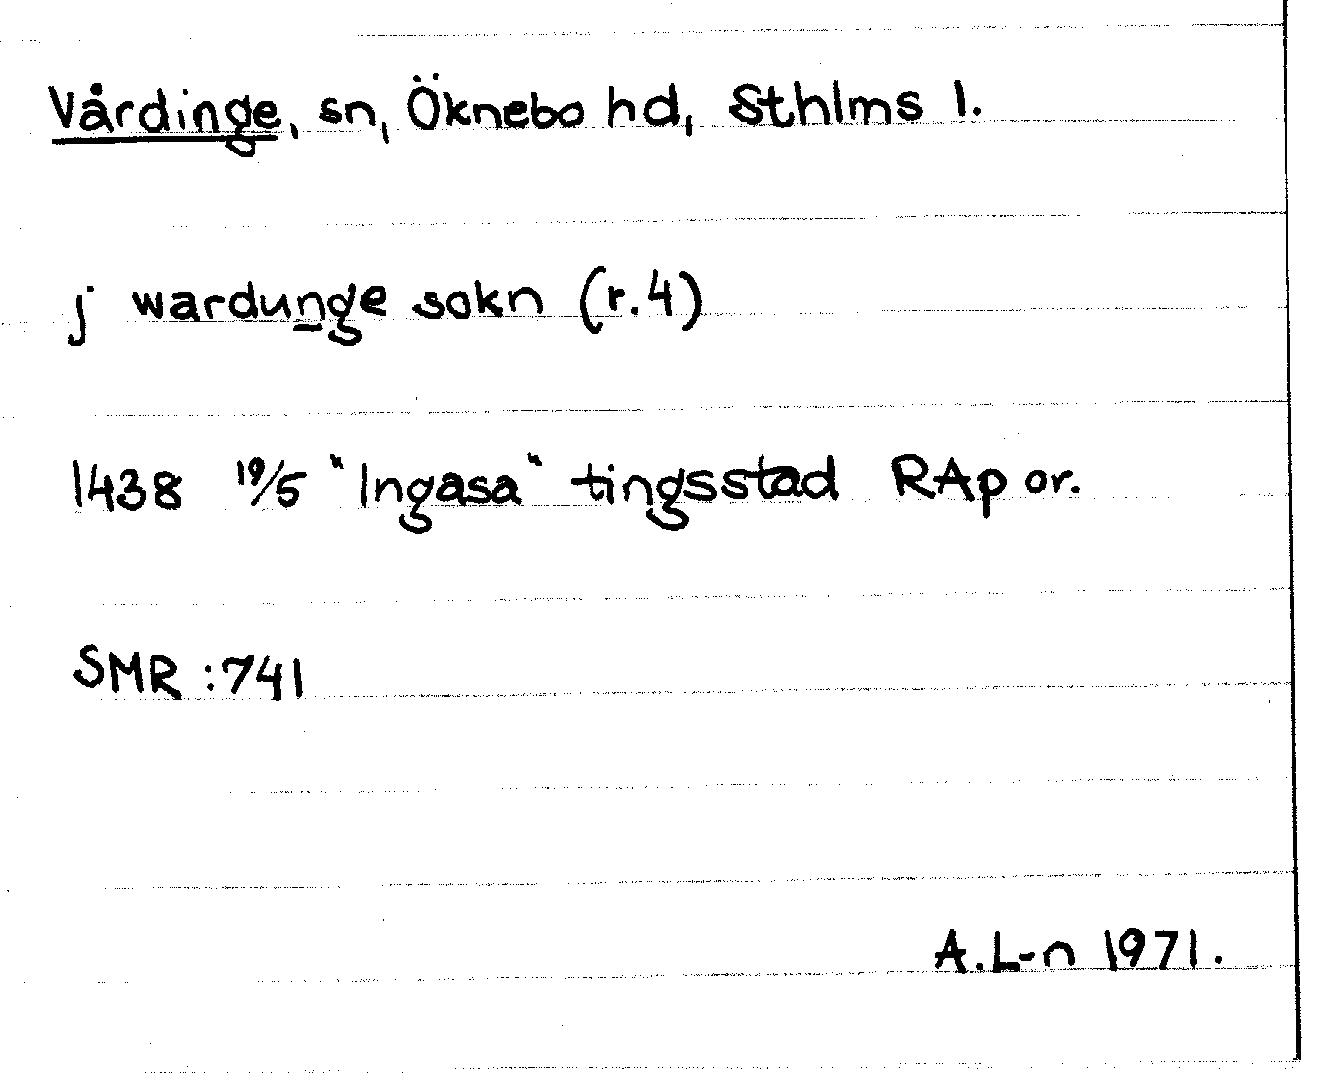 Vårdinge, sn, Öknebo hd, Sthlms l.
j wardunge sokn (r.4)
1438 19/5 "Ingasa" tingsstad RAp or.
SMR :741
A.L-n 1971.